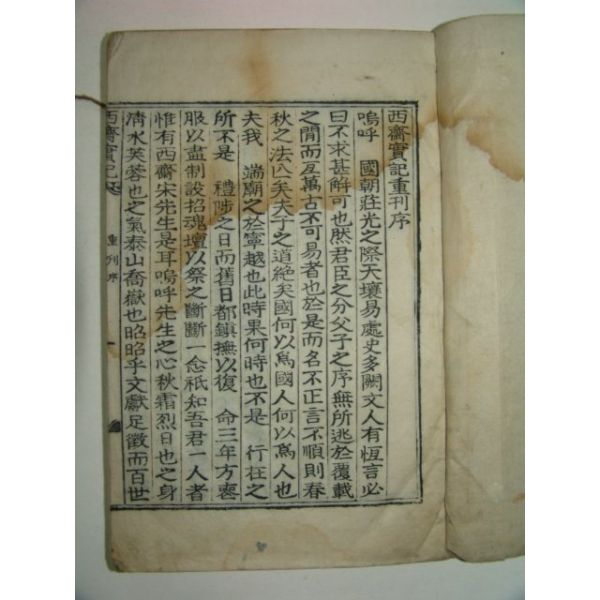 西齋實記重刊序
嗚呼 國朝莊光之際天壤易處史多闕文人有恆言必
曰不求甚解可也然君臣之分父子之序無所逃於覆載
之間而亙萬古不可易者也於是而名不正言不順則春
秋之法亾矣夫子之道絶矣國何以爲國人何以爲人也
夫我 端廟之於寧越也此時果何時也不是 行在之
所不是 禮陟之日而舊日都鎭撫以復 命三年方喪
服以盡制設招魂壇以祭之斷斷一念祇知吾君一人者
惟有西齋宋先生是耳嗚呼先生之心秋霜烈日也之身
淸水芙蓉也之氣泰山喬嶽也昭昭乎文獻足徵而百世
西齋實記
重刊序
一